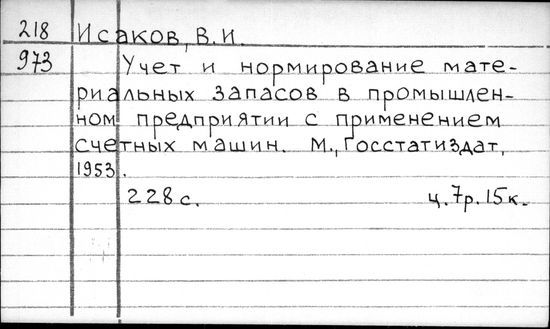 218 Исаков, В.И.
973 Учет и нормирование мате-
риальных запасов в промышлен-
ном предприятии с применением
счетных машин. М., Госстатиздат,
1953.
228 с. ц. 7р. 15к.